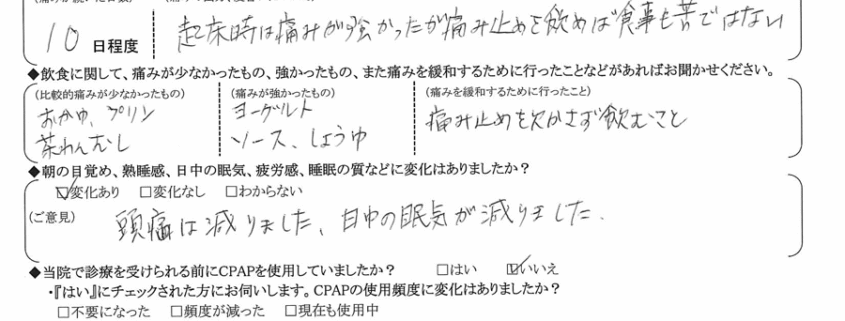 10 日程度 起床時は痛みが強かったが痛み止めを飲めば食事も苦ではない
◆飲食に関して、痛みが少なかったもの、強かったもの、また痛みを緩和するために行ったことなどがあればお聞かせください。
(比較的痛みが少なかったもの) (痛みが強かったもの) (痛みを緩和するために行ったこと)
おかゆ、プリン ヨーグルト 痛み止めを欠かさず飲むこと
茶わんむし ソース、しょうゆ
◆朝の目覚め、熟睡感、日中の眠気、疲労感、睡眠の質などに変化はありましたか?
☑変化あり □変化なし □わからない
(ご意見) 頭痛は減りました、日中の眠気が減りました.
◆当院で診療を受けられる前にCPAPを使用していましたか? □はい ☑いいえ
・『はい』にチェックされた方にお伺いします。CPAPの使用頻度に変化はありましたか?
□不要になった □頻度が減った □現在も使用中